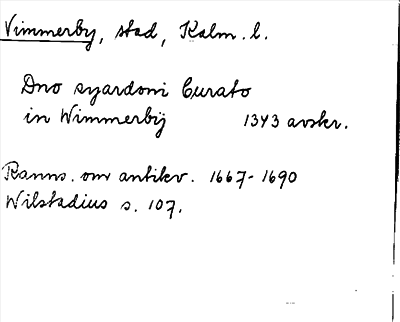 Vimmerby, stad, Kalm. l.
Dno syardoni Curato
in Wimmerbij 1343 avskr.
Ranns. om antikv. 1667-1690
Wilstadius s. 107.